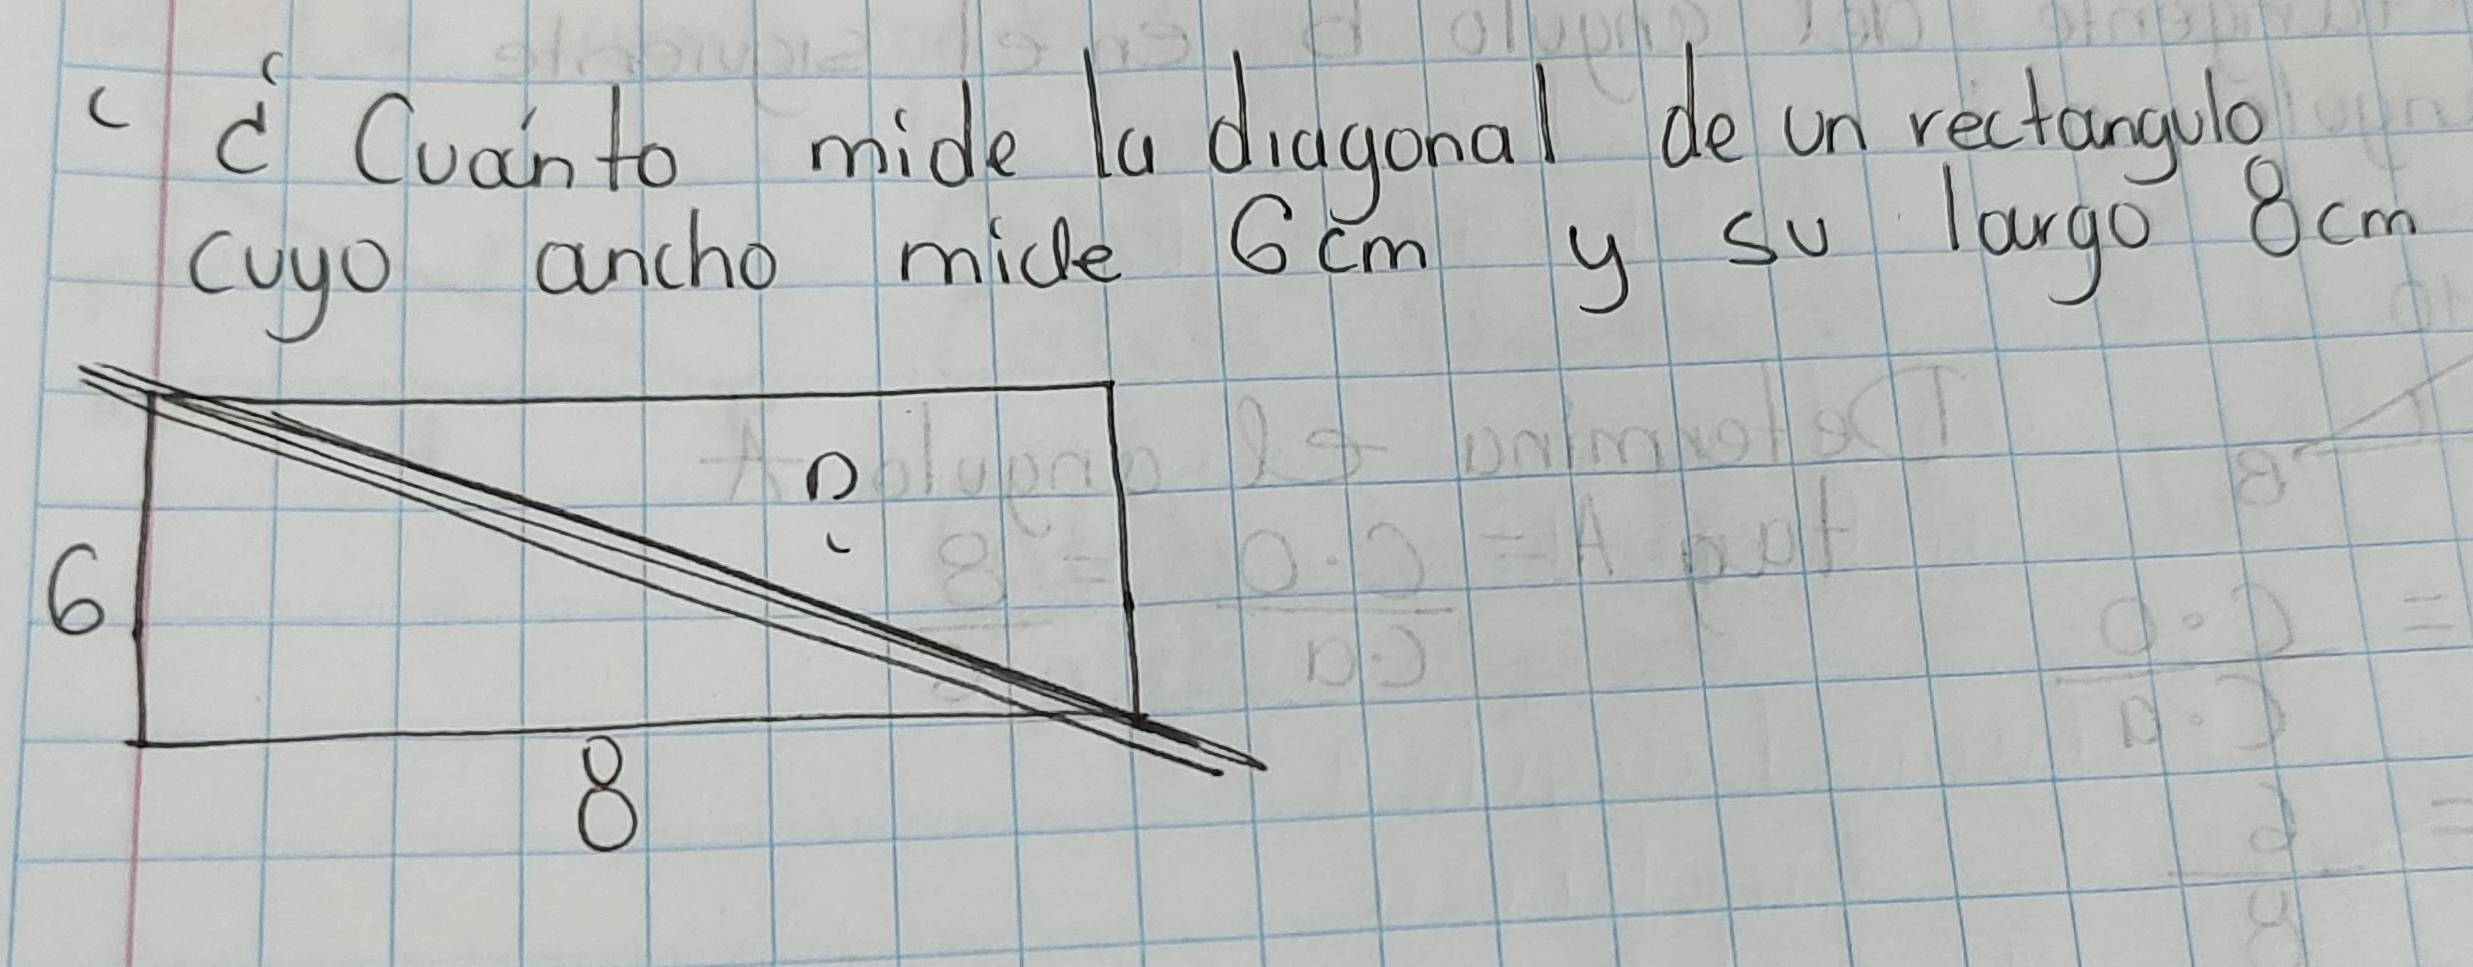 ¿Cuánto mide la diagonal de un rectangulo
cuyo ancho mide 6cm y su largo 8cm
?
6
8